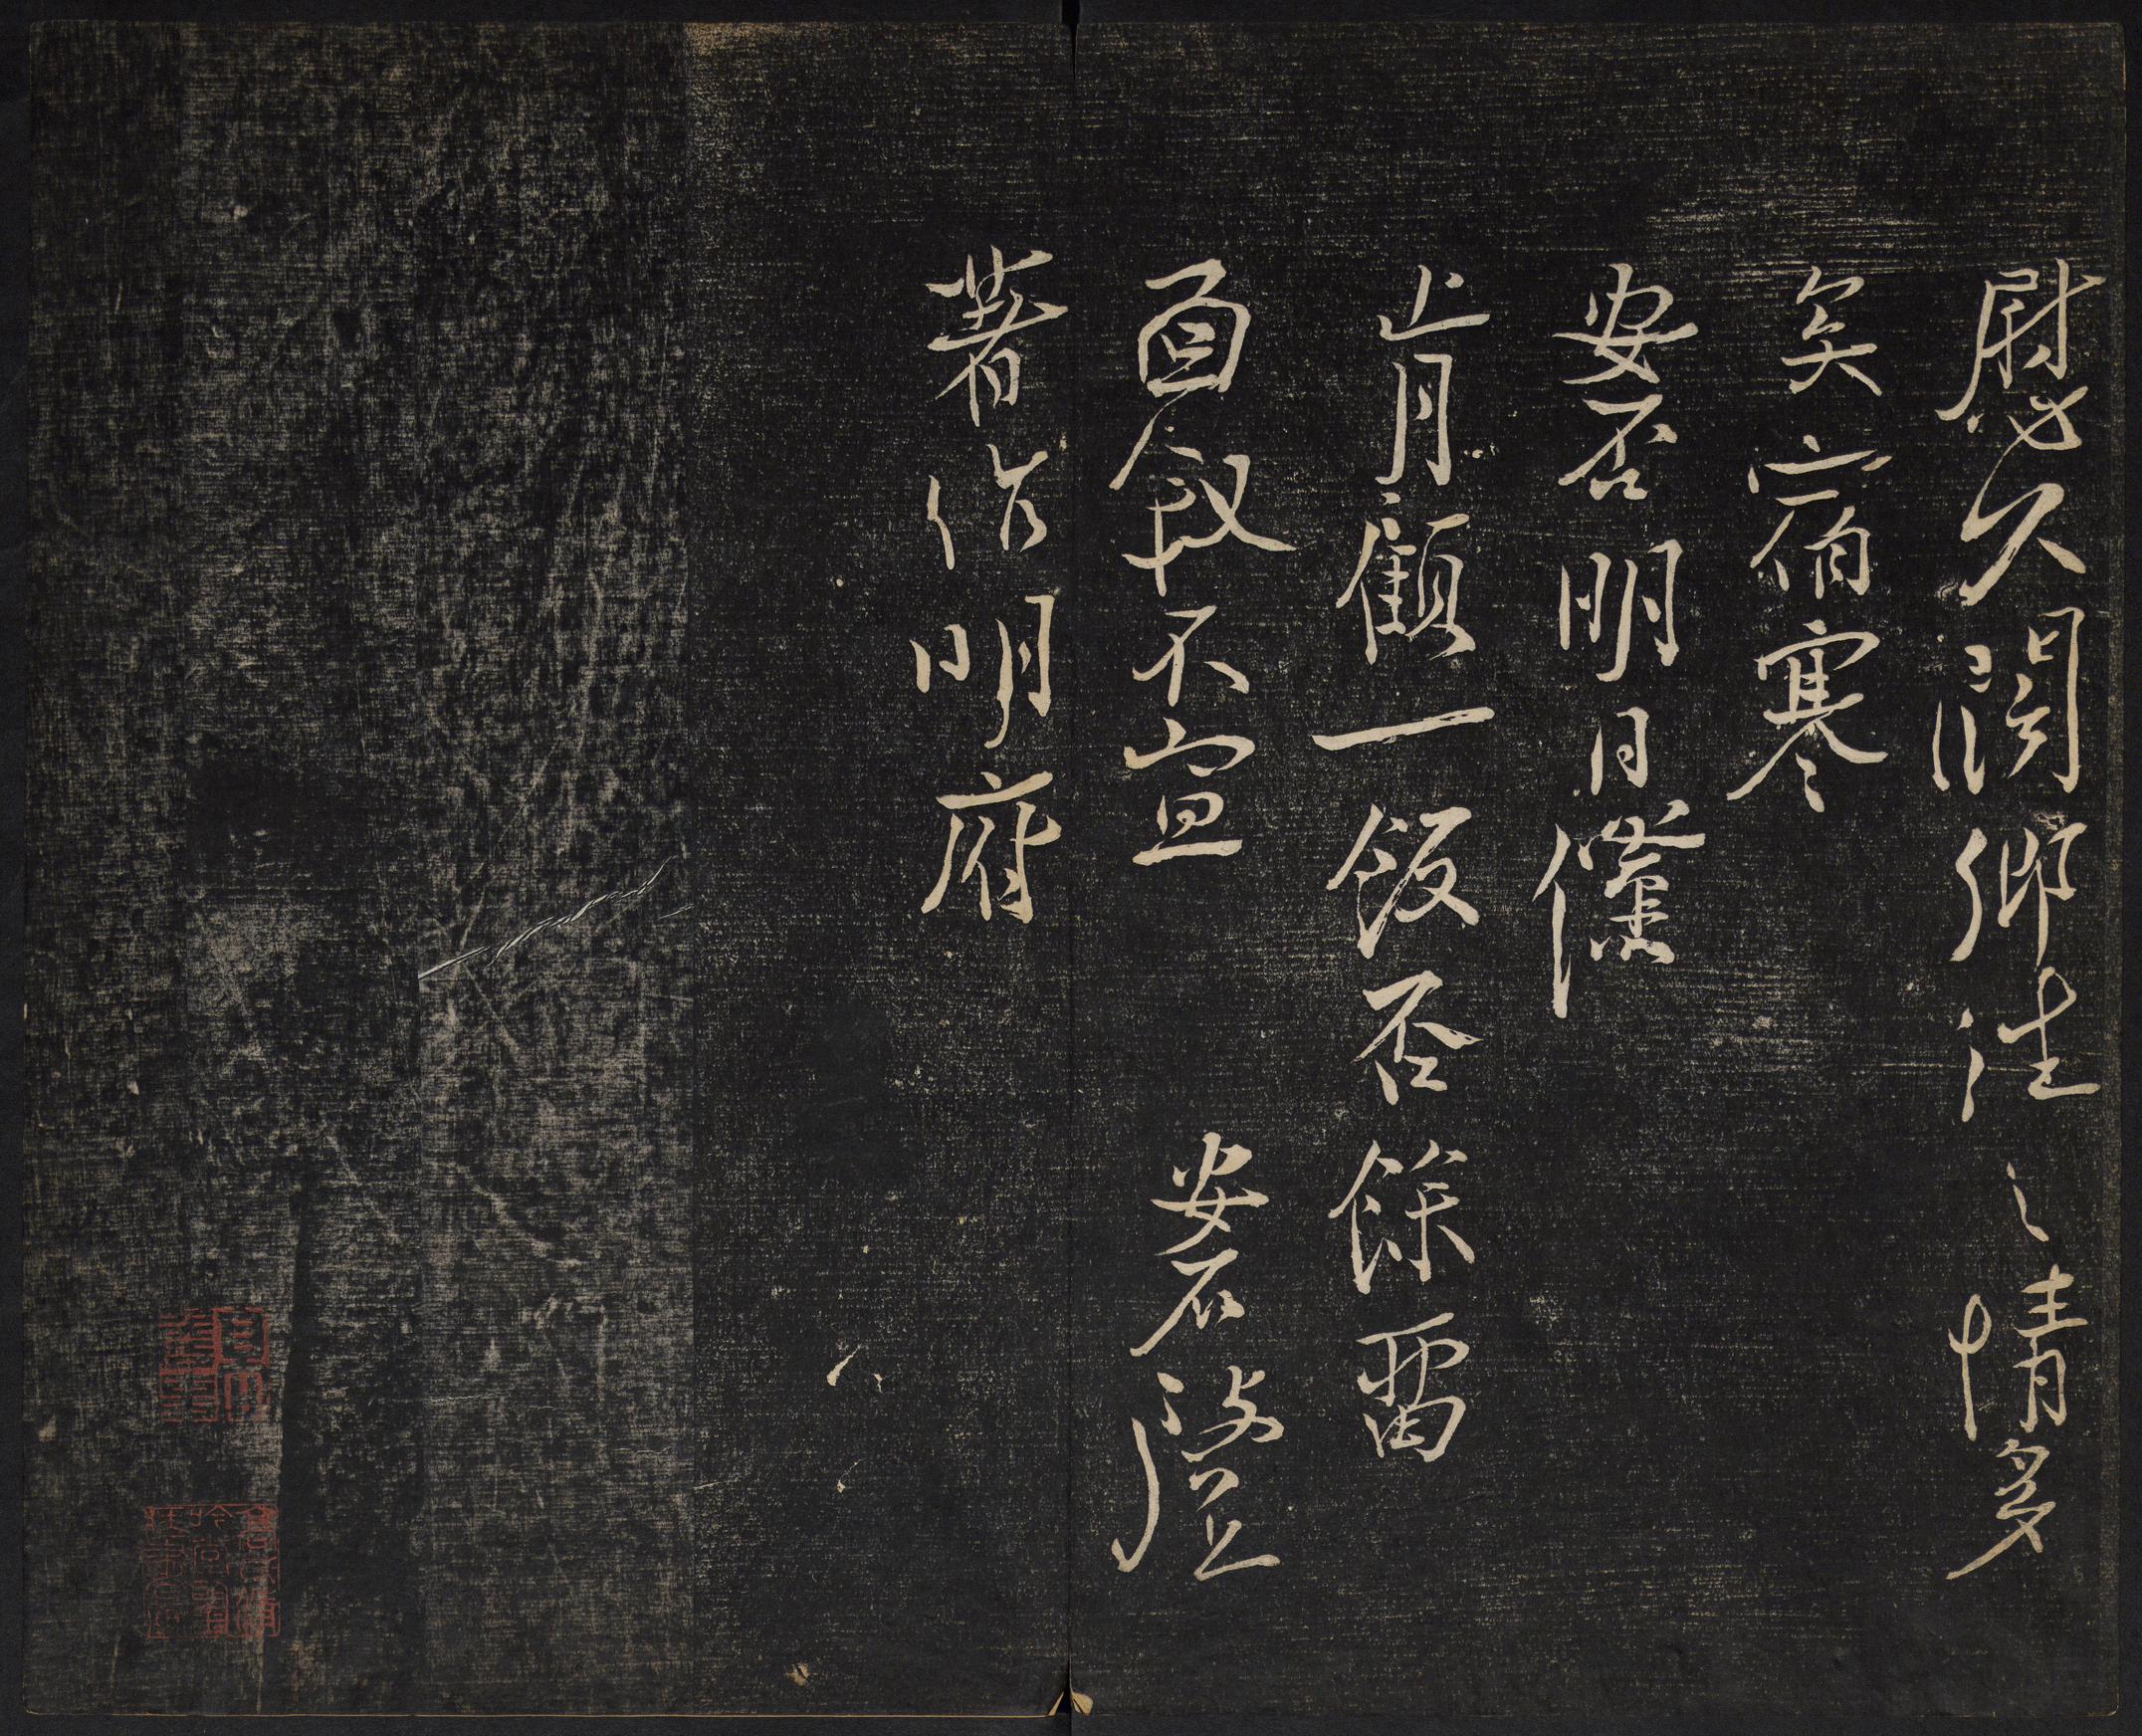 慰久闊鄉往之情多
矣宿寒
安否明日儻
肯顧一飯否餘留
面敘不宣 安石啓上
著作明府